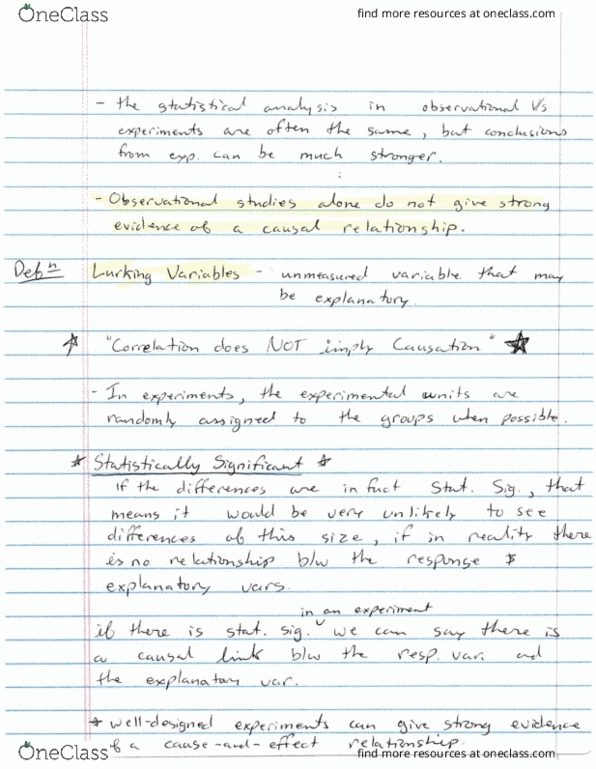 OneClass
find more resources at oneclass.com
- the statistical analysis in observational v/s
experiments are often the same, but conclusions
from exp. can be much stronger.
- Observational studies alone do not give strong
evidence of a causal relationship.
Defⁿ Lurking Variables - unmeasured variable that may
be explanatory.
☆ "Correlation does NOT imply Causation" ★
- In experiments, the experimental units are
randomly assigned to the groups when possible.
* Statistically Significant *
If the differences are in fact Stat. Sig., that
means it would be very unlikely to see
differences of this size, if in reality there
is no relationship b/w the response &
explanatory vars.
in an experiment
if there is stat. sig. ˅ we can say there is
a causal link b/w the resp. var. and
the explanatory var.
* well-designed experiments can give strong evidence
of a cause-and-effect relationship.
OneClass
find more resources at oneclass.com